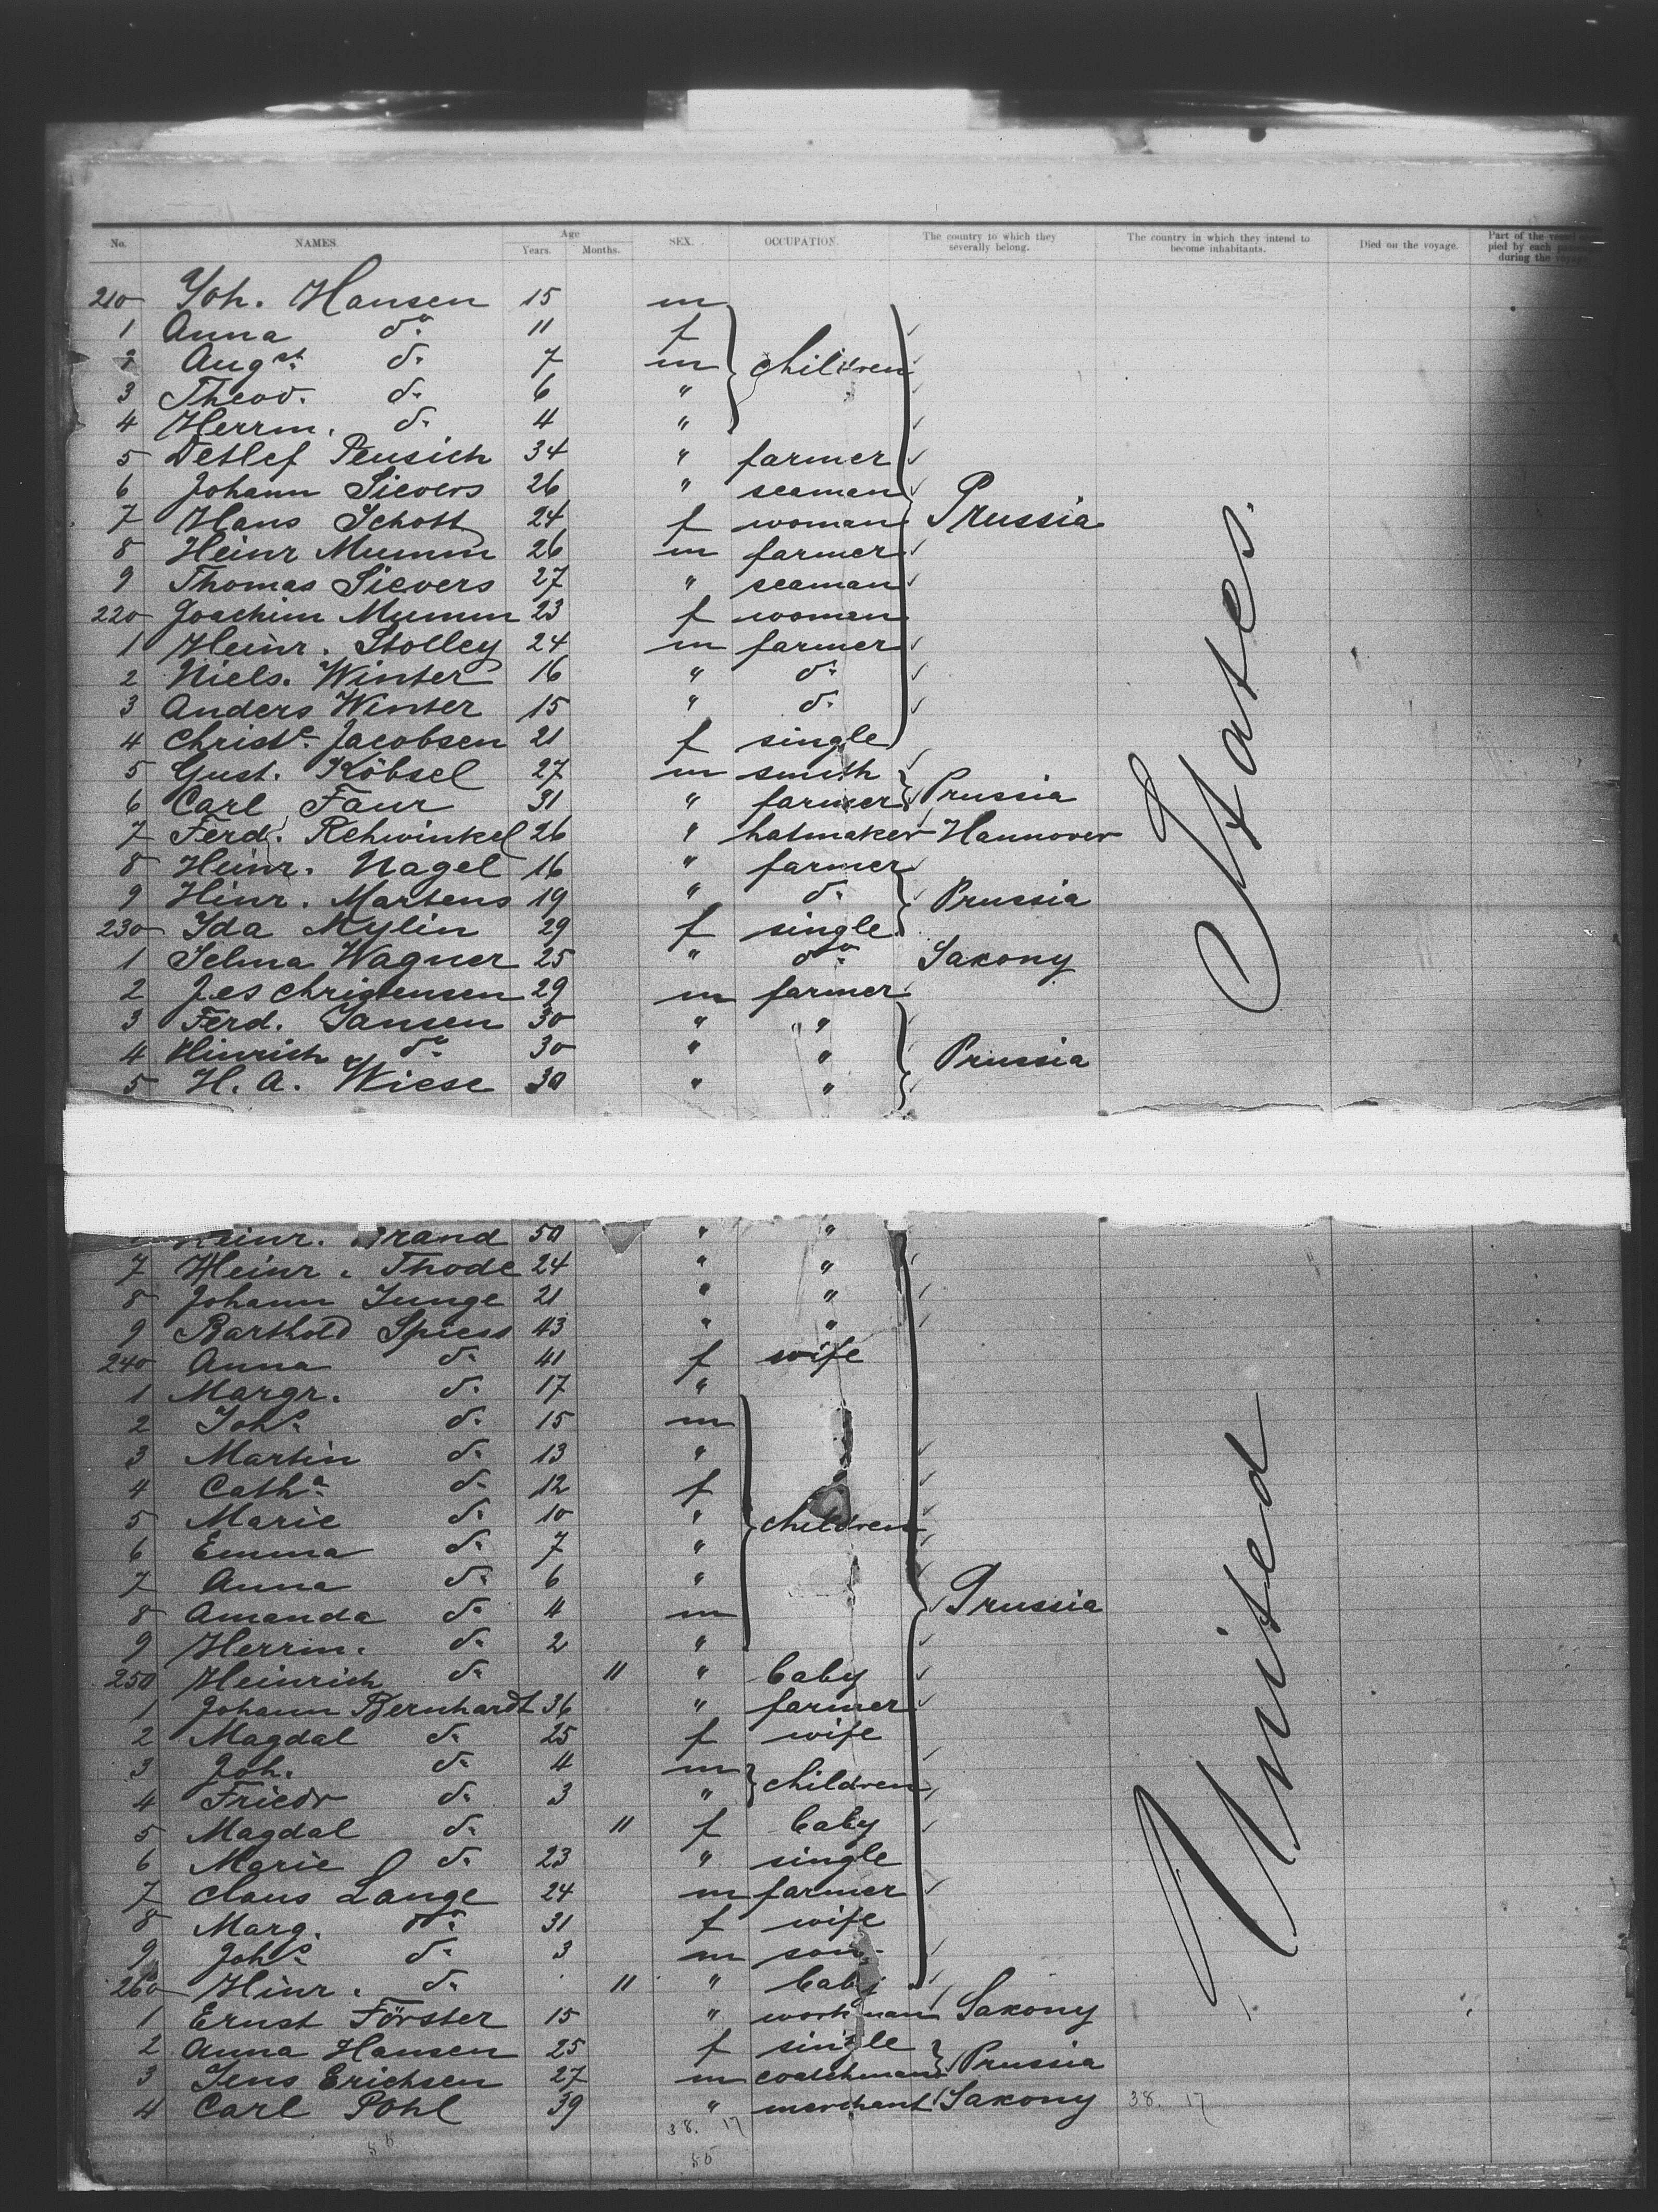 No. NAMES. Age Years. Months. SEX. OCCUPATION. The country to which they severally belong. The country in which they intend to become inhabitants. Died on the voyage. Part of the vessel pied by each during the voyage
210 Joh. Hansen 15 m
1 Anna do. 11 f
2 Augst. do. 7 m children
3 Theod. do. 6 "
4 Herrm. do. 4 "
5 Detlef Peusich 34 " farmer
6 Johann Sievers 26 " seaman
7 Hans Schott 24 f woman Prussia
8 Heinr Mumm 26 m farmer
9 Thomas Sievers 27 " seaman
220 Joachim Mumm 23 f women
1 Heinr. Stolley 24 m farmer
2 Niels. Winter 16 " do.
3 Anders Winter 15 " do.
4 Christe. Jacobsen 21 f single
5 Gust. Köbsel 27 m smith
6 Carl Faur 31 " farmer Prussia
7 Ferd. Rehwinkel 26 " hatmaker Hannover
8 Heinr. Nagel 16 " farmer
9 Hinr. Martens 19 " do. Prussia
230 Ida Mylin 29 f single
1 Selma Wagner 25 " do. Saxony
2 Jes Christensen 29 m farmer
3 Ferd. Jansen 30 " "
4 Hinrich do. 30 " " Prussia
5 H. A. Wiese 30 " "
States.
Heinr. Brand 50 " "
7 Heinr. Thode 24 " "
8 Johann Junge 21 " "
9 Barthold Spiess 43 " "
240 Anna do. 41 f wife
1 Margr. do. 17 "
2 Johs. do. 15 m
3 Martin do. 13 "
4 Catha. do. 12 f
5 Marie do. 10 " children
6 Emma do. 7 "
7 Anna do. 6 "
8 Amanda do. 4 m Prussia
9 Herrm. do. 2 "
250 Heinrich do. 11 " baby
1 Johann Bernhardt 36 " farmer
2 Magdal do. 25 f wife
3 Joh. do. 4 m children
4 Friedr do. 3 "
5 Magdal do. 11 f baby
6 Marie do. 23 " single
7 Claus Lange 24 m farmer
8 Marg. do. 31 f wife
9 Johs. do. 3 m son
260 Hinr. do. 11 " baby
1 Ernst Förster 15 " workman Saxony
2 Anna Hansen 25 f single
3 Jens Erichsen 27 m coatchman Prussia
4 Carl Pohl 39 " merchant Saxony 38. 17
United
38. 17
55
55